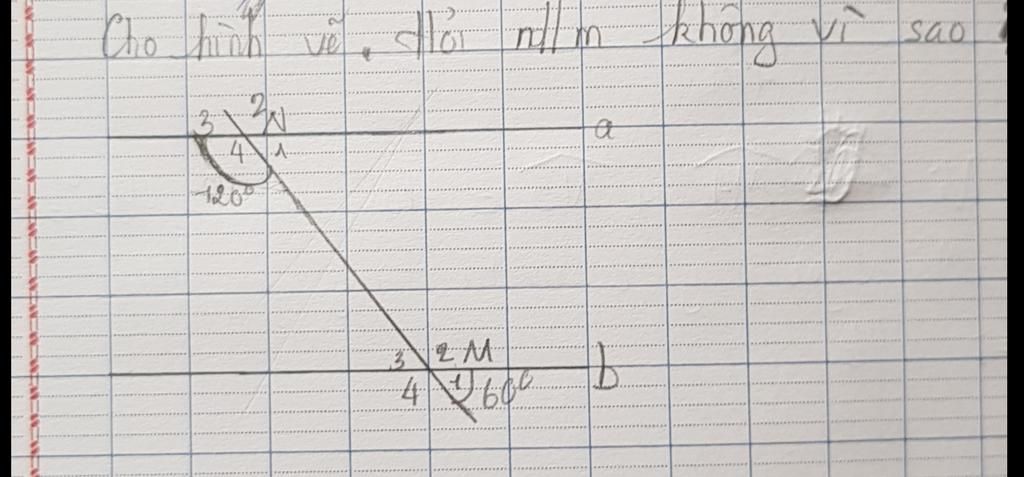 Cho hình vẽ. Hỏi n//m không vì sao
2 N
3
a
4 1
120°
3 2 M
b
4 1 60°